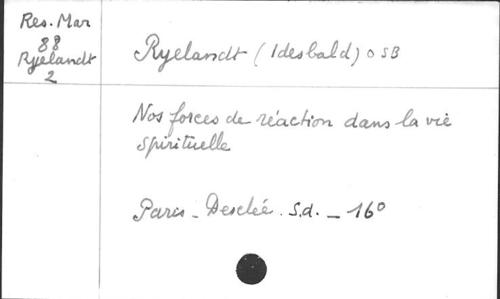 Res. Mar
88
Ryelandt
2
Ryelandt (Idesbald) OSB
Nos forces de réaction dans la vie
spirituelle
Paris - Desclée. S.d. - 16º